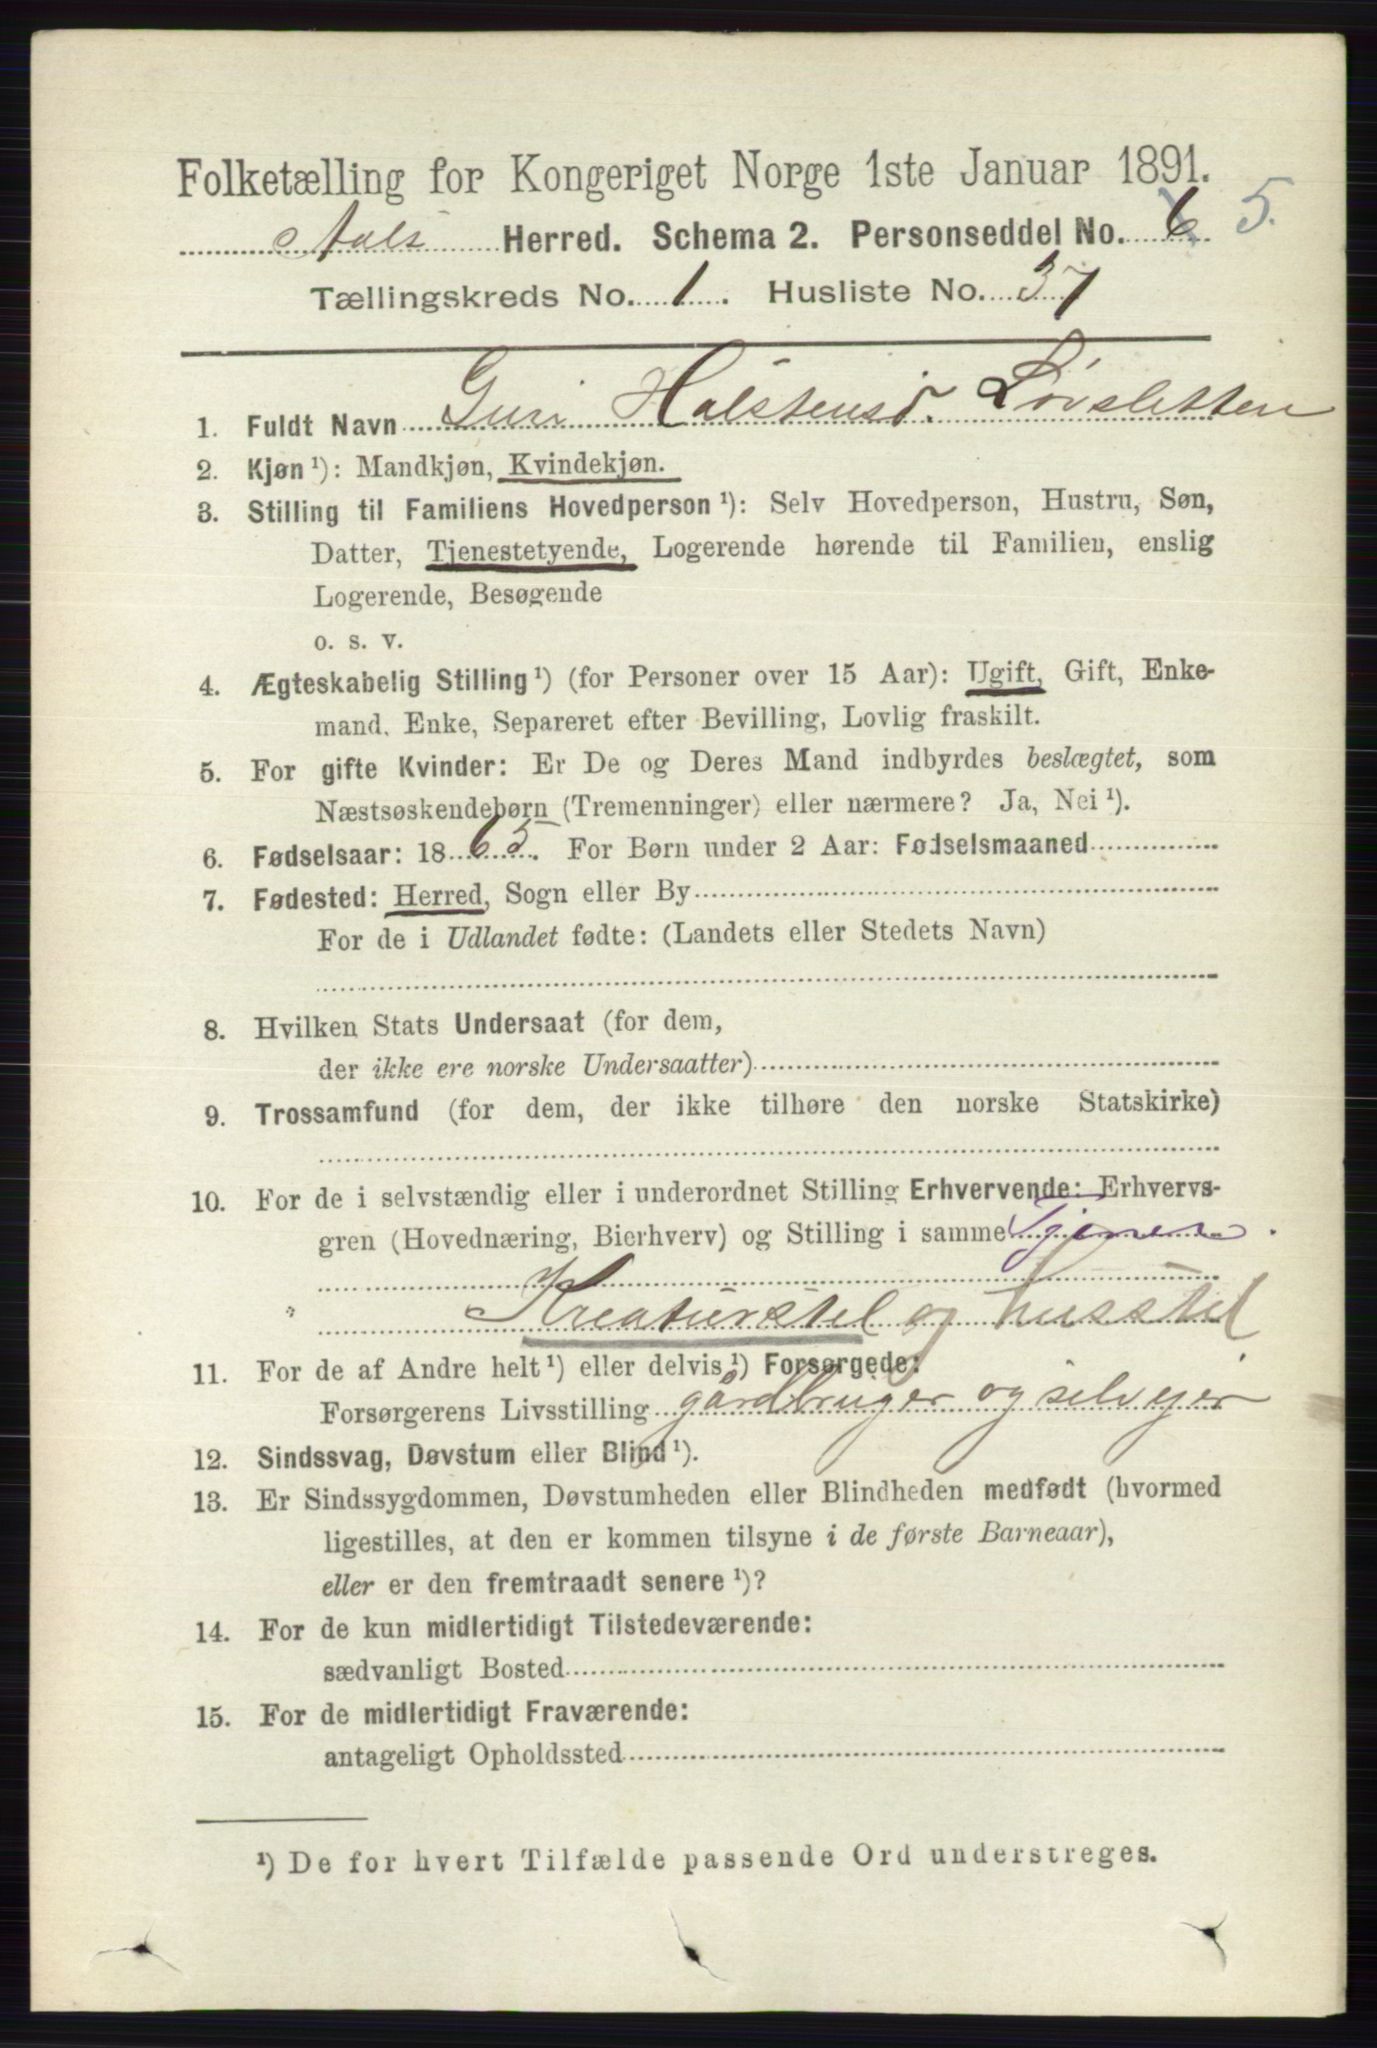 Folketælling for Kongeriget Norge 1ste Januar 1891.
Aals Herred. Schema 2. Personseddel No. 6 5.
Tællingskreds No. 1. Husliste No. 37
1. Fuldt Navn Guri Halstensd. Løvsletten
2. Kjøn ¹): Mandkjøn, Kvindekjøn.
3. Stilling til Familiens Hovedperson ¹): Selv Hovedperson, Hustru, Søn,
Datter, Tjenestetyende, Logerende hørende til Familien, enslig
Logerende, Besøgende
o. s. v.
4. Ægteskabelig Stilling ¹) (for Personer over 15 Aar): Ugift, Gift, Enke-
mand, Enke, Separeret efter Bevilling, Lovlig fraskilt.
5. For gifte Kvinder: Er De og Deres Mand indbyrdes beslægtet, som
Næstsøskendebørn (Tremenninger) eller nærmere? Ja, Nei ¹).
6. Fødselsaar: 1865. For Børn under 2 Aar: Fødselsmaaned
7. Fødested: Herred, Sogn eller By
For de i Udlandet fødte: (Landets eller Stedets Navn)
8. Hvilken Stats Undersaat (for dem,
der ikke ere norske Undersaatter)
9. Trossamfund (for dem, der ikke tilhøre den norske Statskirke)
10. For de i selvstændig eller i underordnet Stilling Erhvervende: Erhvervs-
gren (Hovednæring, Bierhverv) og Stilling i samme Tjener
Kreaturstel og husstel
11. For de af Andre helt ¹) eller delvis ¹) Forsørgede:
Forsørgerens Livsstilling gårdbruger og selveier
12. Sindssvag, Døvstum eller Blind ¹).
13. Er Sindssygdommen, Døvstumheden eller Blindheden medfødt (hvormed
ligestilles, at den er kommen tilsyne i de første Barneaar),
eller er den fremtraadt senere ¹)?
14. For de kun midlertidigt Tilstedeværende:
sædvanligt Bosted
15. For de midlertidigt Fraværende:
antageligt Opholdssted
¹) De for hvert Tilfælde passende Ord understreges.